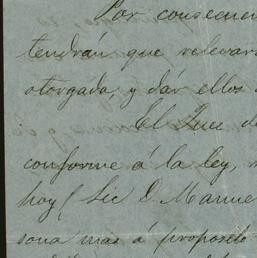 Por consecuen
tendrán que relevars
otorgada, y dár ellos
El Juez de
conforme á la ley, n
hoy (Lic D. Manue
sona mas á proposito